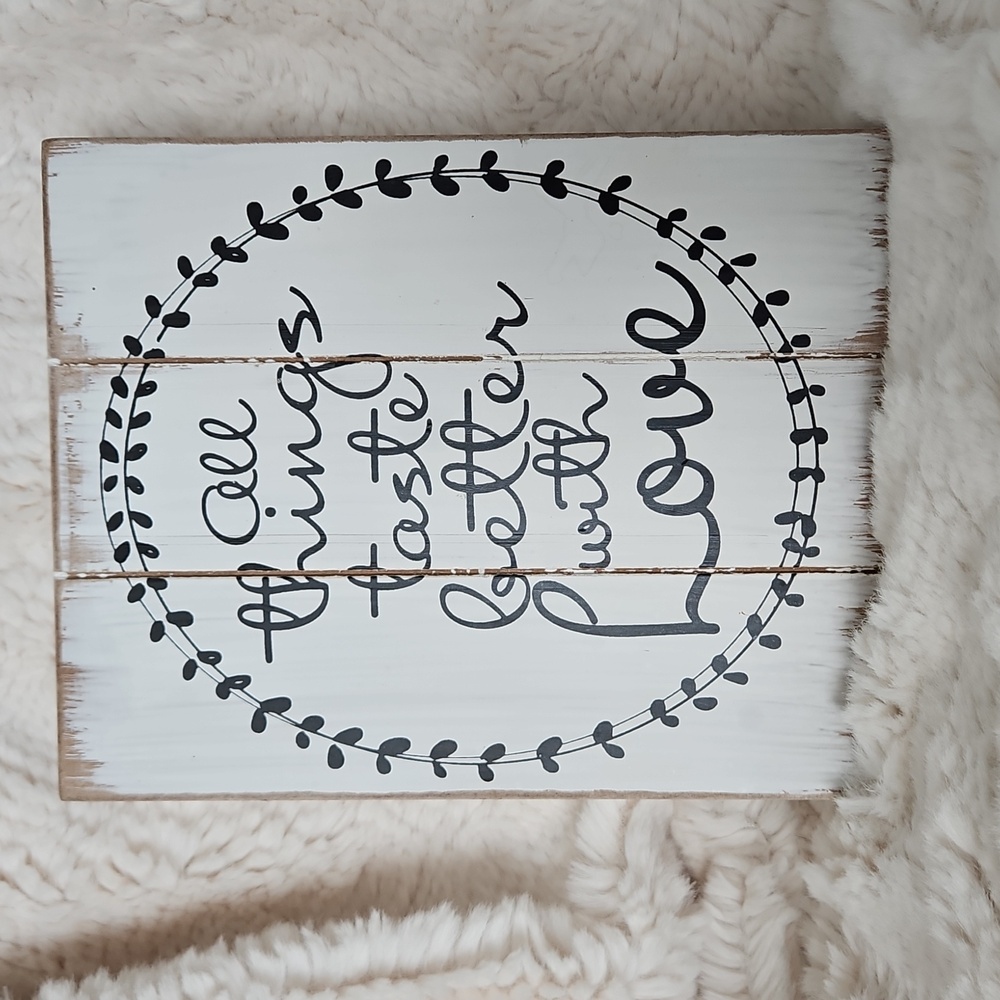 all
things
taste
better
with
Love